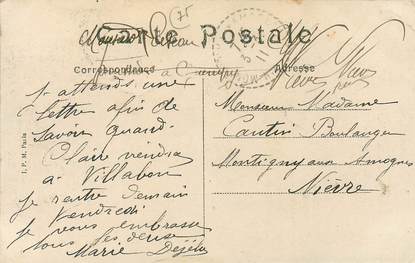 Carte Postale
Correspondance
Adresse
J'attends une
lettre afin de
savoir quand
Claire viendra
à Villabon
je rentre demain
Vendredi
je vous embrasse
tous les deux
Marie
Monsieur Madame
Cautin Boulanger
Montigny aux Amognes
Nièvre
I. P. M. Paris